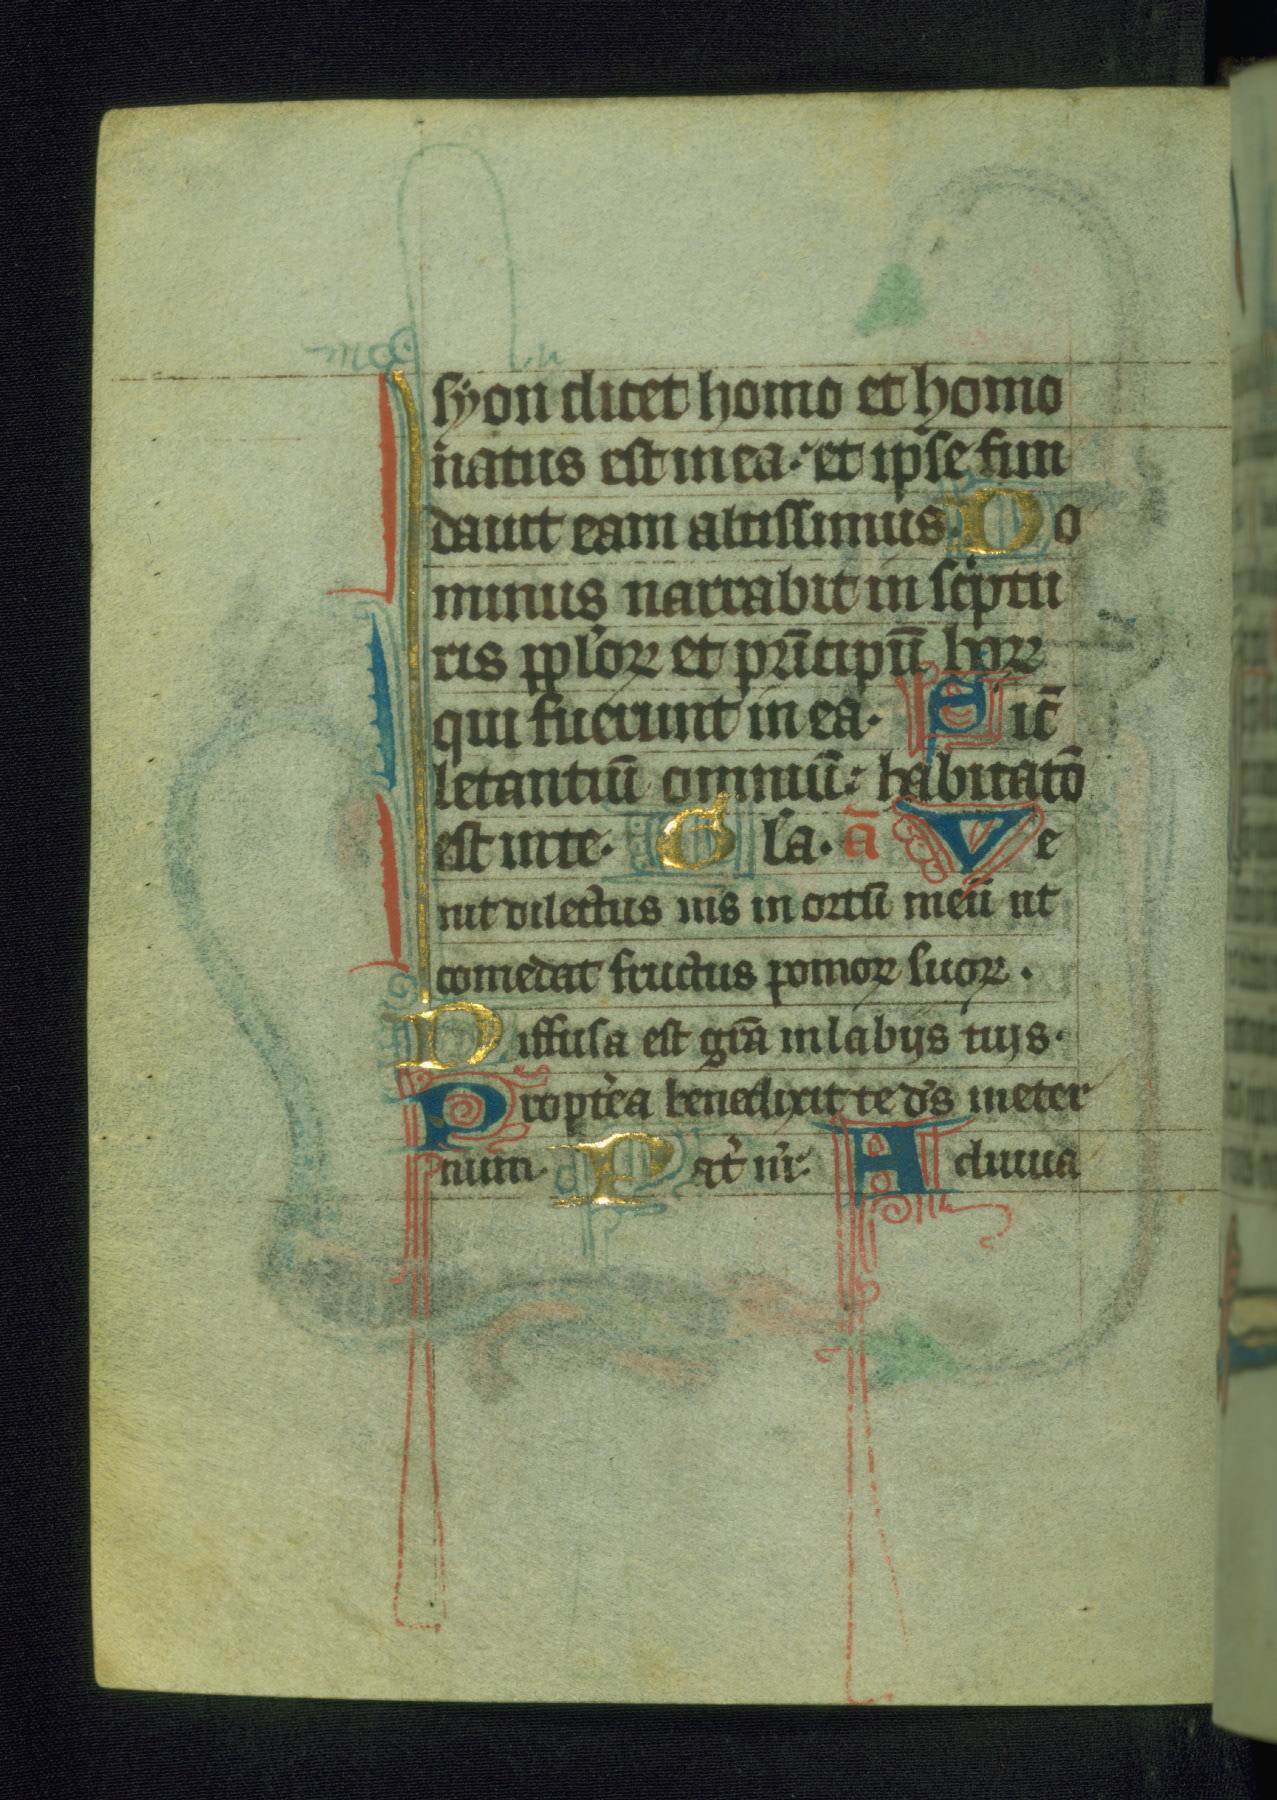 syon dicet homo et homo
natus est in ea· et ip̄se fun
dauit eam altissimus. Do
minus narrabit in sc̄ptu
ris pplōꝝ et prīcipū hoꝝ
qui fuerunt in ea. Sic̄
letantiū omniū: habitatō
est in te. Gl̄a. ā Ve
nit dilectus m̄s in ortū meū ut
comedat fructus pomoꝝ suoꝝ.
Diffusa est grā in labijs tuis.
Propt̄ea benedixit te d̄s in eter
num. Pat̄ nr̄. Adiuua